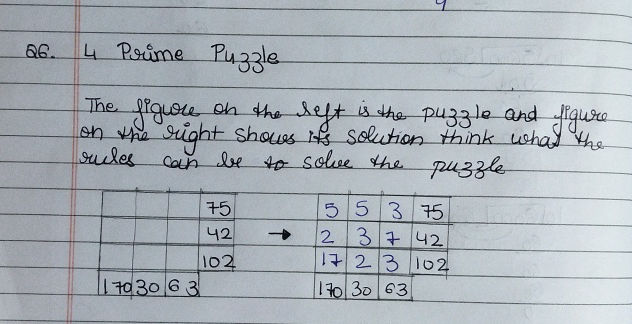 Q6. 4 Prime Puzzle
The figure on the left is the puzzle and figure
on the right shows its solution think what the
rules can be to solve the puzzle
75 5 5 3 75
42 → 2 3 7 42
102 17 2 3 102
170 30 63 170 30 63